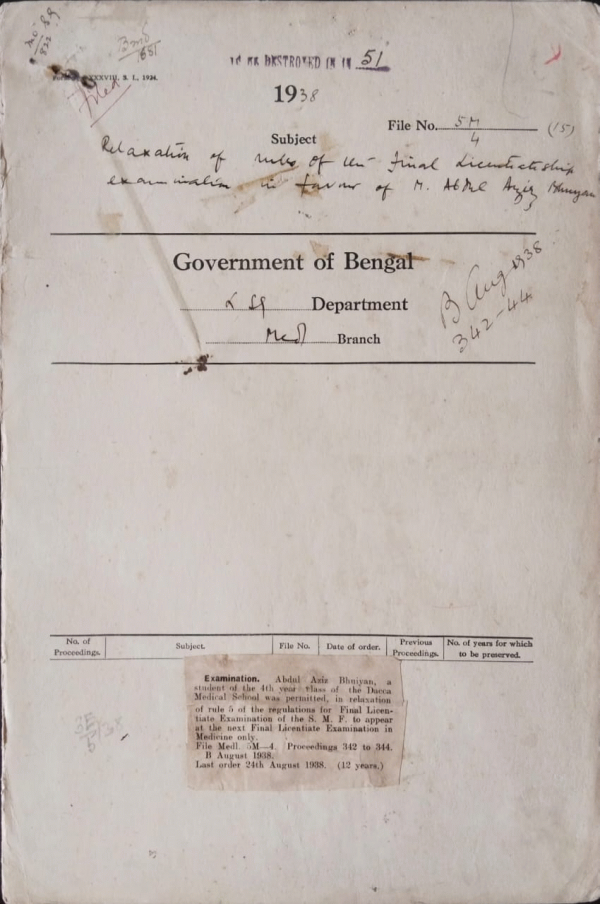 TO BE DESTROYED IN IN 51
XXXVIII, B. I., 1934.
Filed
1938
File No. 5M/4 (15)
Subject
Relaxation of rules of the Final Licentiateship
examination in favour of M. Abdul Aziz Bhuiyan
Government of Bengal
L S G Department
Medl Branch
B Aug 1938
342-44
No. of Proceedings. Subject. File No. Date of order. Previous Proceedings. No. of years for which to be preserved.
Examination. Abdul Aziz Bhuiyan, a
student of the 4th year class of the Dacca
Medical School was permitted, in relaxation
of rule 5 of the regulations for Final Licen-
tiate Examination of the S. M. F. to appear
at the next Final Licentiate Examination in
Medicine only.
File Medl. 5M—4. Proceedings 342 to 344.
B August 1938.
Last order 24th August 1938. (12 years.)